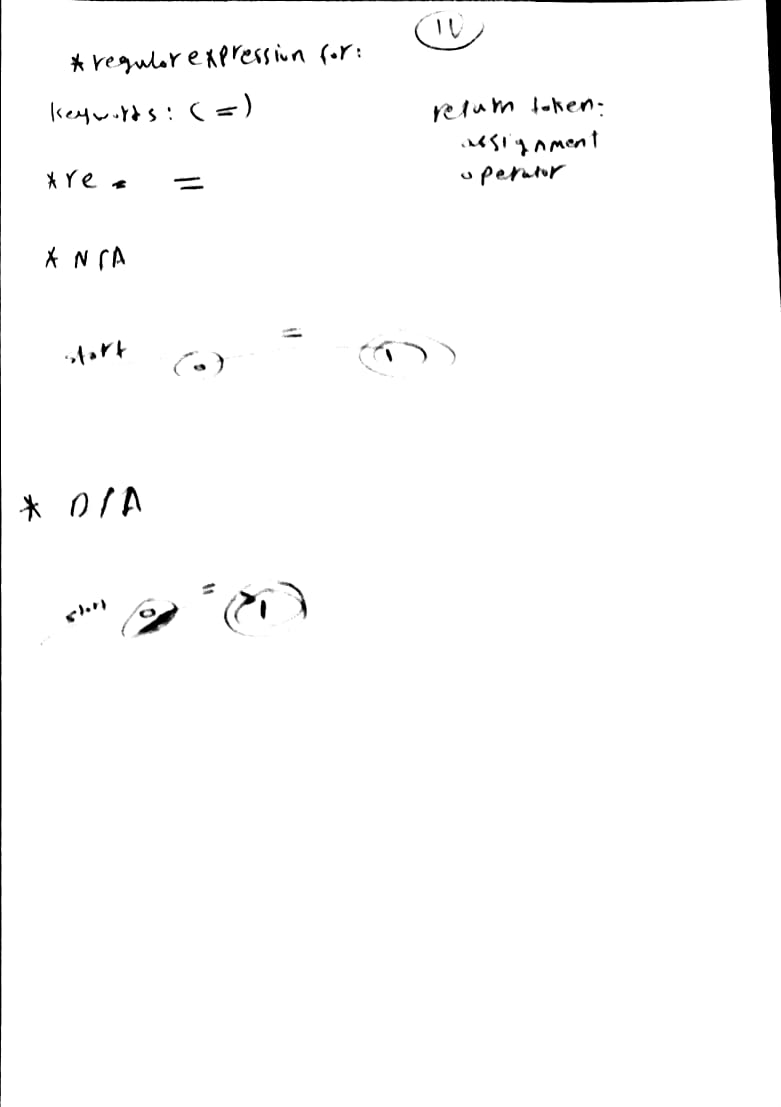 10
* regular expression for:
keywords: (=)
return token:
assignment
operator
* re = =
* NFA
start 0 = 1
* DFA
start 0 = 1